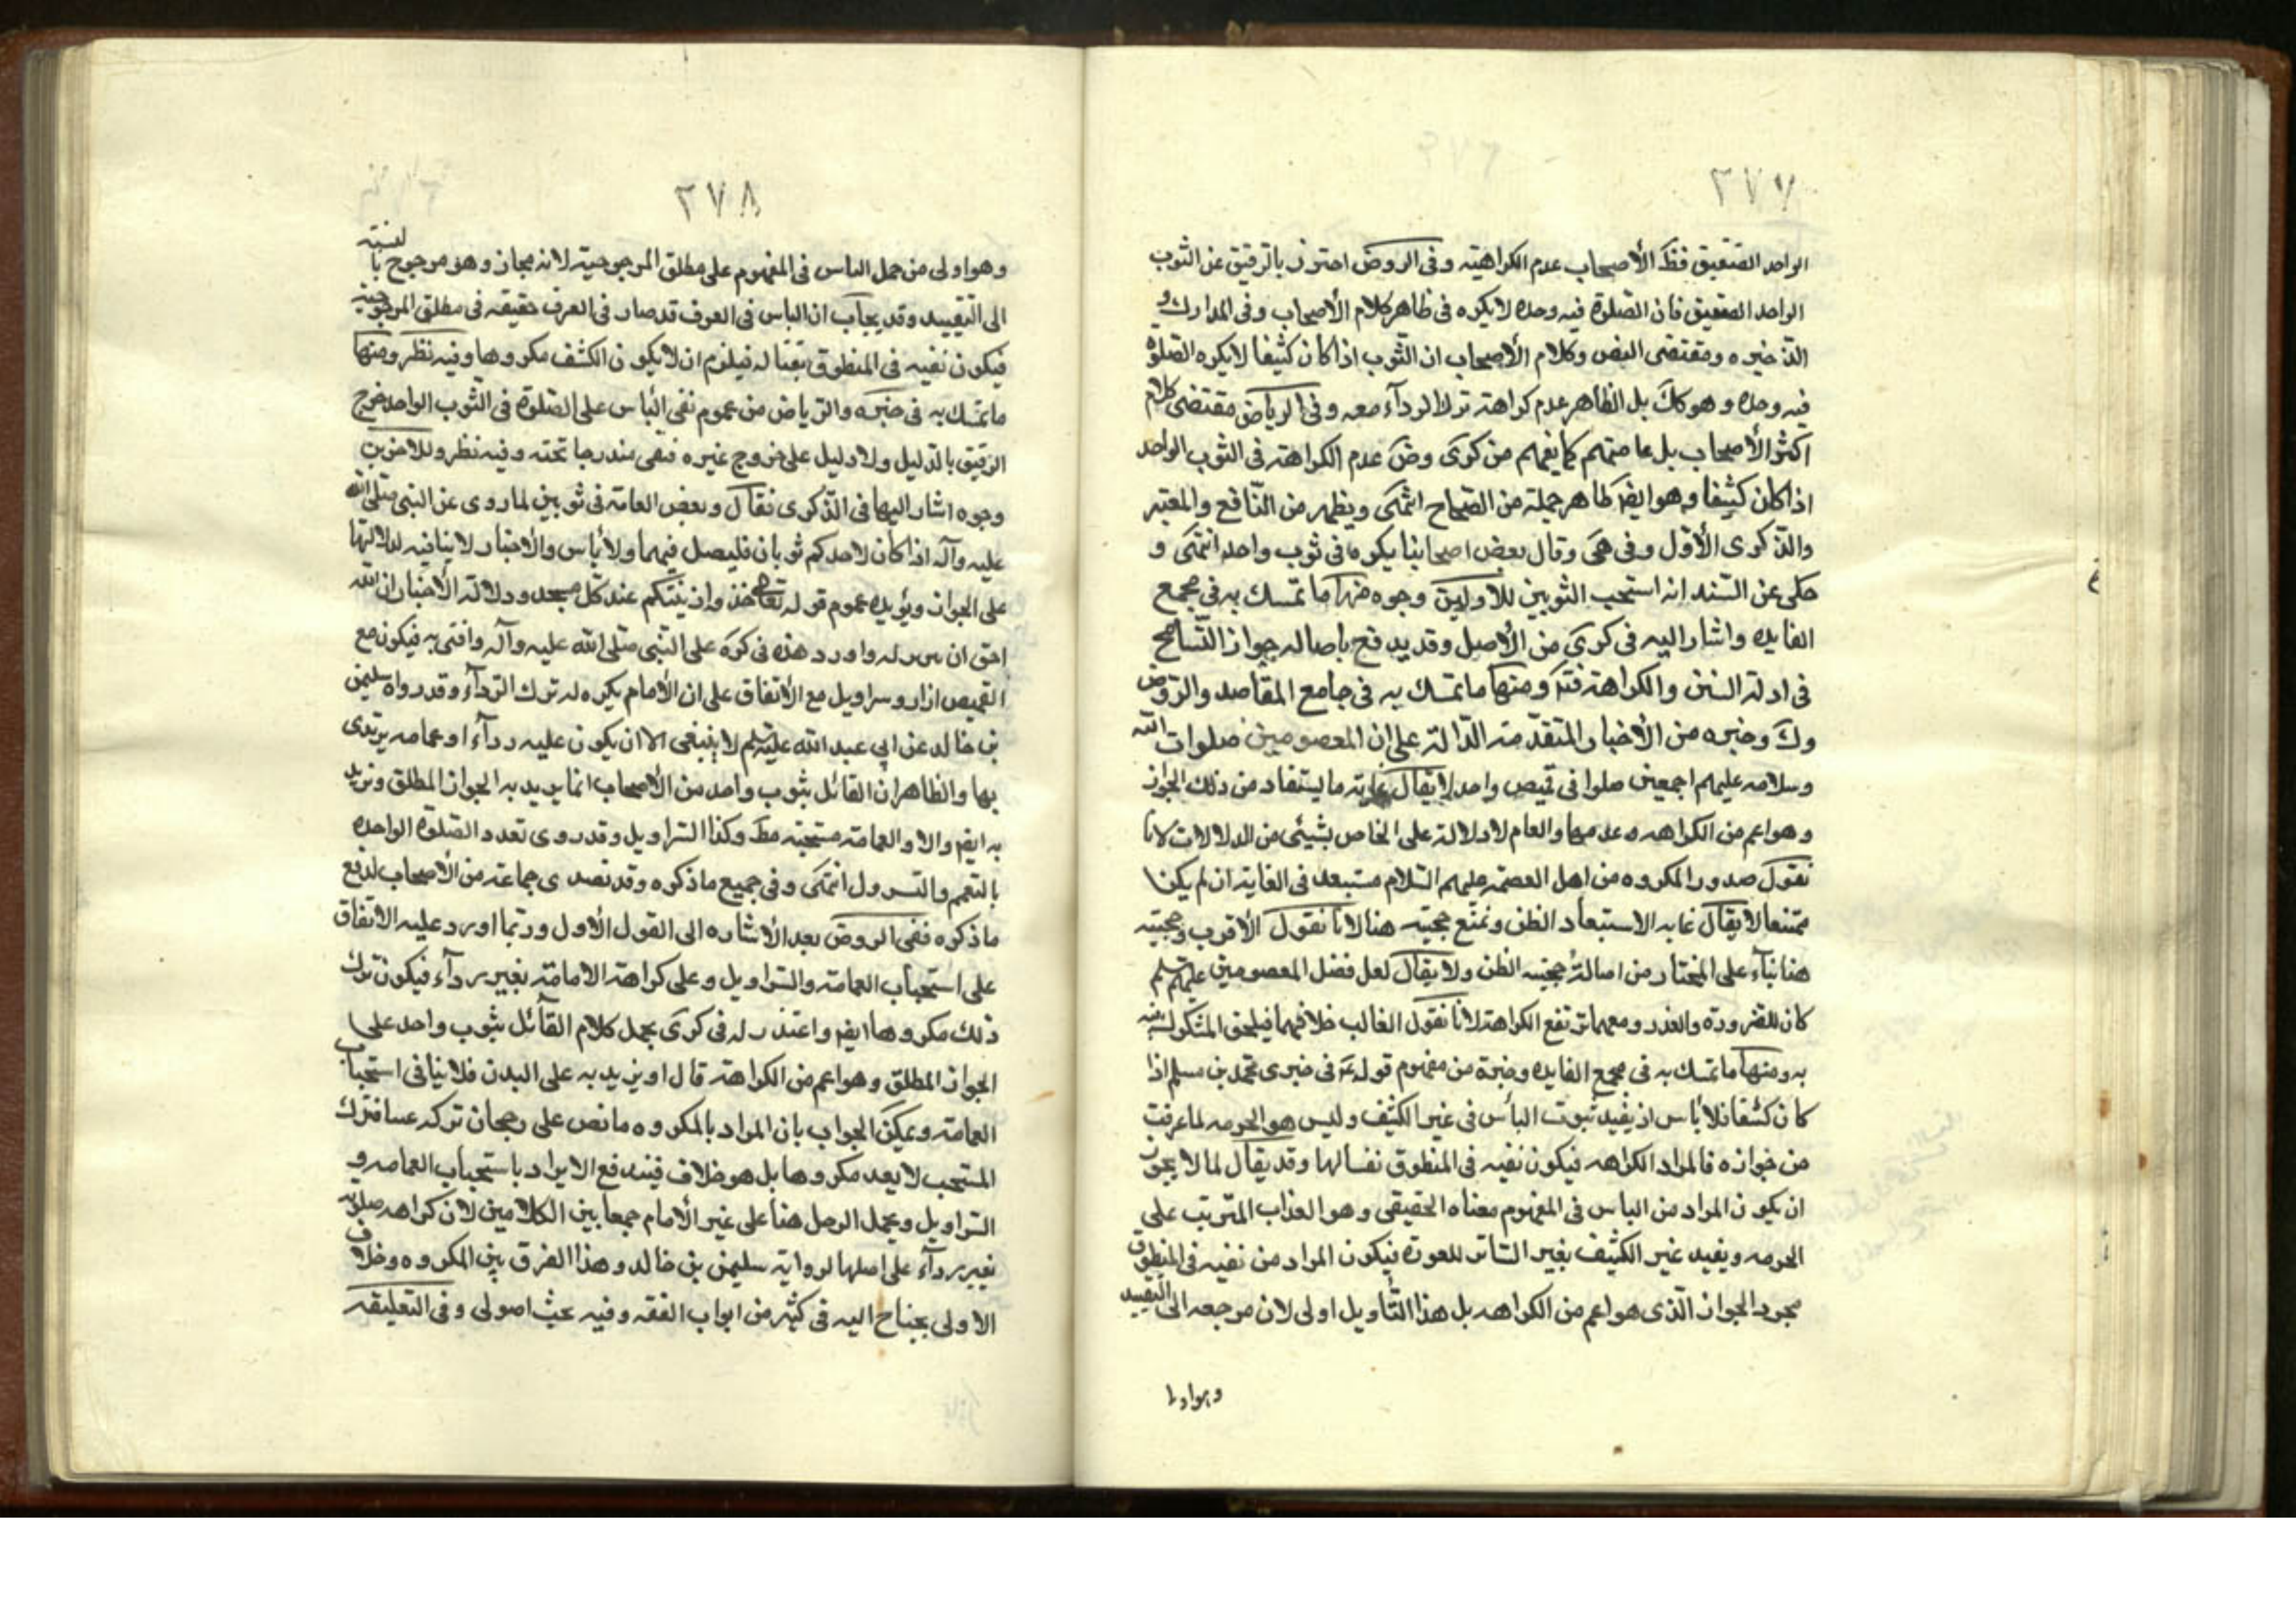 ٢٧٧
الواحد الصفيق فظ الأصحاب عدم الكراهية وفى الروض احترز بالرقيق عن الثوب
الواحد الصفيق فان الصلوة فيه وحده لا يكره فى ظاهر كلام الأصحاب وفى المدارك و
الذخيره ومقتضى النص وكلام الأصحاب ان الثوب اذا كان كثيفا لا يكره الصلوة
فيه وحده وهو كك بل الظاهر عدم كراهته ترك الرداء معه وفى الرياض مقتضى كلام
اكثر الأصحاب بل عامتهم كما يفهم من كرى وض عدم الكراهة فى الثوب الواحد
اذا كان كثيفا وهو ايض ظاهر جملة من الصحاح انتهى ويظهر من النافع والمعتبر
والذكرى الأول وفى هى وقال بعض اصحابنا يكره فى ثوب واحد انتهى و
حكى عن السند انه استحب الثوبين للأولين وجوه منها ما تمسك به فى مجمع
الفايده واشار اليه فى كرى من الأصل وقد يدفع باصاله جواز التسامح
فى ادلة السنن والكراهة فتد ومنها ما تمسك به فى جامع المقاصد والروض
وك وخيره من الأخبار المتقدمة الدالة على ان المعصومين صلوات الله
وسلامه عليهم اجمعين صلوا فى قميص واحد لا يقال غاية ما يستفاد من ذلك الجواز
وهو اعم من الكراهه وعدمها والعام لا دلالة على الخاص بشيئى من الدلالات لانا
نقول صدور المكروه من اهل العصمة عليهم السلام مستبعد فى الغاية ان لم يكن
ممتنعا لا يقال غايه الاستبعاد الظن ونمنع حجيته هنا لانا نقول الأقرب حجيته
هنا بناء على المختار من اصالة حجيته الظن ولا يقال لعل فضل المعصومين عليهم سلم
كان للضرورة والعذر ومعهما ترتفع الكراهة لانا نقول الغالب خلافهما فيلحق المشكوك فيه
به ومنها ما تمسك به فى مجمع الفايده وخيرة من مفهوم قوله ع فى خبرى محمد بن مسلم اذا
كان كثيفا فلا بأس اذ يفيد ثبوت البأس فى غير الكثيف وليس هو الحرمه لما عرفت
من جوازه فالمراد الكراهه فيكون نفيه فى المنطوق نفسا لها وقد يقال لما لا يجوز
ان يكون المراد من الباس فى المفهوم معناه الحقيقى وهو العذاب المترتب على
الحرمه ويفيد غير الكثيف بغير الساتر للعورة فيكون المراد من نفيه فى المنطوق
مجرد الجواز الذى هو اعم من الكراهه بل هذا التأويل اولى لان مرجعه الى التقييد
وهو اولى
٢٧٨
وهو اولى من حمل الباس فى المفهوم على مطلق المرجوحية لانه مجاز وهو مرجوح بالنسبة
الى التقييد وقد يجاب ان الباس فى العرف قد صار فى العرف حقيقه فى مطلق المرجوحية
فيكون نفيه فى المنطوق نفيا له فيلزم ان لا يكون الكشف مكروها وفيه نظر ومنها
ما تمسك به فى خيره والرياض من عموم نفى الباس على الصلوة فى الثوب الواحد خرج
الرقيق بالدليل ولا دليل على خروج غيره فبقى مندرجا تحته وفيه نظر وللاخرين
وجوه اشار اليها فى الذكرى فقال وبعض العامة فى ثوبين لما روى عن النبى صلى الله
عليه وآله اذا كان لاحدكم ثوبان فليصل فيهما ولا بأس والأخبار لا ينافيه لدلالتها
على الجواز ويؤيده عموم قوله تعالى خذوا زينتكم عند كل مسجد ودلالة الأخبار ان الله
احق ان يزين له واورد هذه فى كره على النبى صلى الله عليه وآله وافتى به فيكون مع
القميص ازار وسراويل مع الأتفاق على ان الأمام يكره له ترك الرداء وقد رواه سليمن
بن خالد عن ابى عبد الله عليه سلم لا ينبغى الا ان يكون عليه رداء او عمامه يرتدى
بها والظاهر ان القائل بثوب واحد من الأصحاب انما يريد به الجواز المطلق ويريد
به ايض والا والعمامة مستحبة مط وكذا السراويل وقد روى تعدد الصلوة الواحده
بالتعمم والتسرول انتهى وفى جميع ما ذكره وقد تصدى جماعة من الأصحاب لدفع
ما ذكره ففى الروض بعد الأشاره الى القول الأول وربما اورد عليه الاتفاق
على استحباب العمامة والسراويل وعلى كراهة الامامة بغير رداء فيكون ترك
ذلك مكروها ايض واعتذر له فى كرى بحمل كلام القائل بثوب واحد على
الجواز المطلق وهو اعم من الكراهة قال او يزيد به على البدن فلا ينافى استحباب
العمامة ويمكن الجواب بان المراد بالمكروه ما نص على رجحان تركه عينا فترك
المستحب لا يعد مكروها بل هو خلاف فيندفع الايراد باستحباب العمامه و
السراويل ويحمل الرجل هنا على غير الأمام جمعا بين الكلامين لان كراهه صلوته
بغير رداء على اصلها لرواية سليمن بن خالد وهذا الفرق بين المكروه وخلاف
الاولى يحتاج اليه فى كثير من ابواب الفقه وفيه بحث اصولى وفى التعليقه